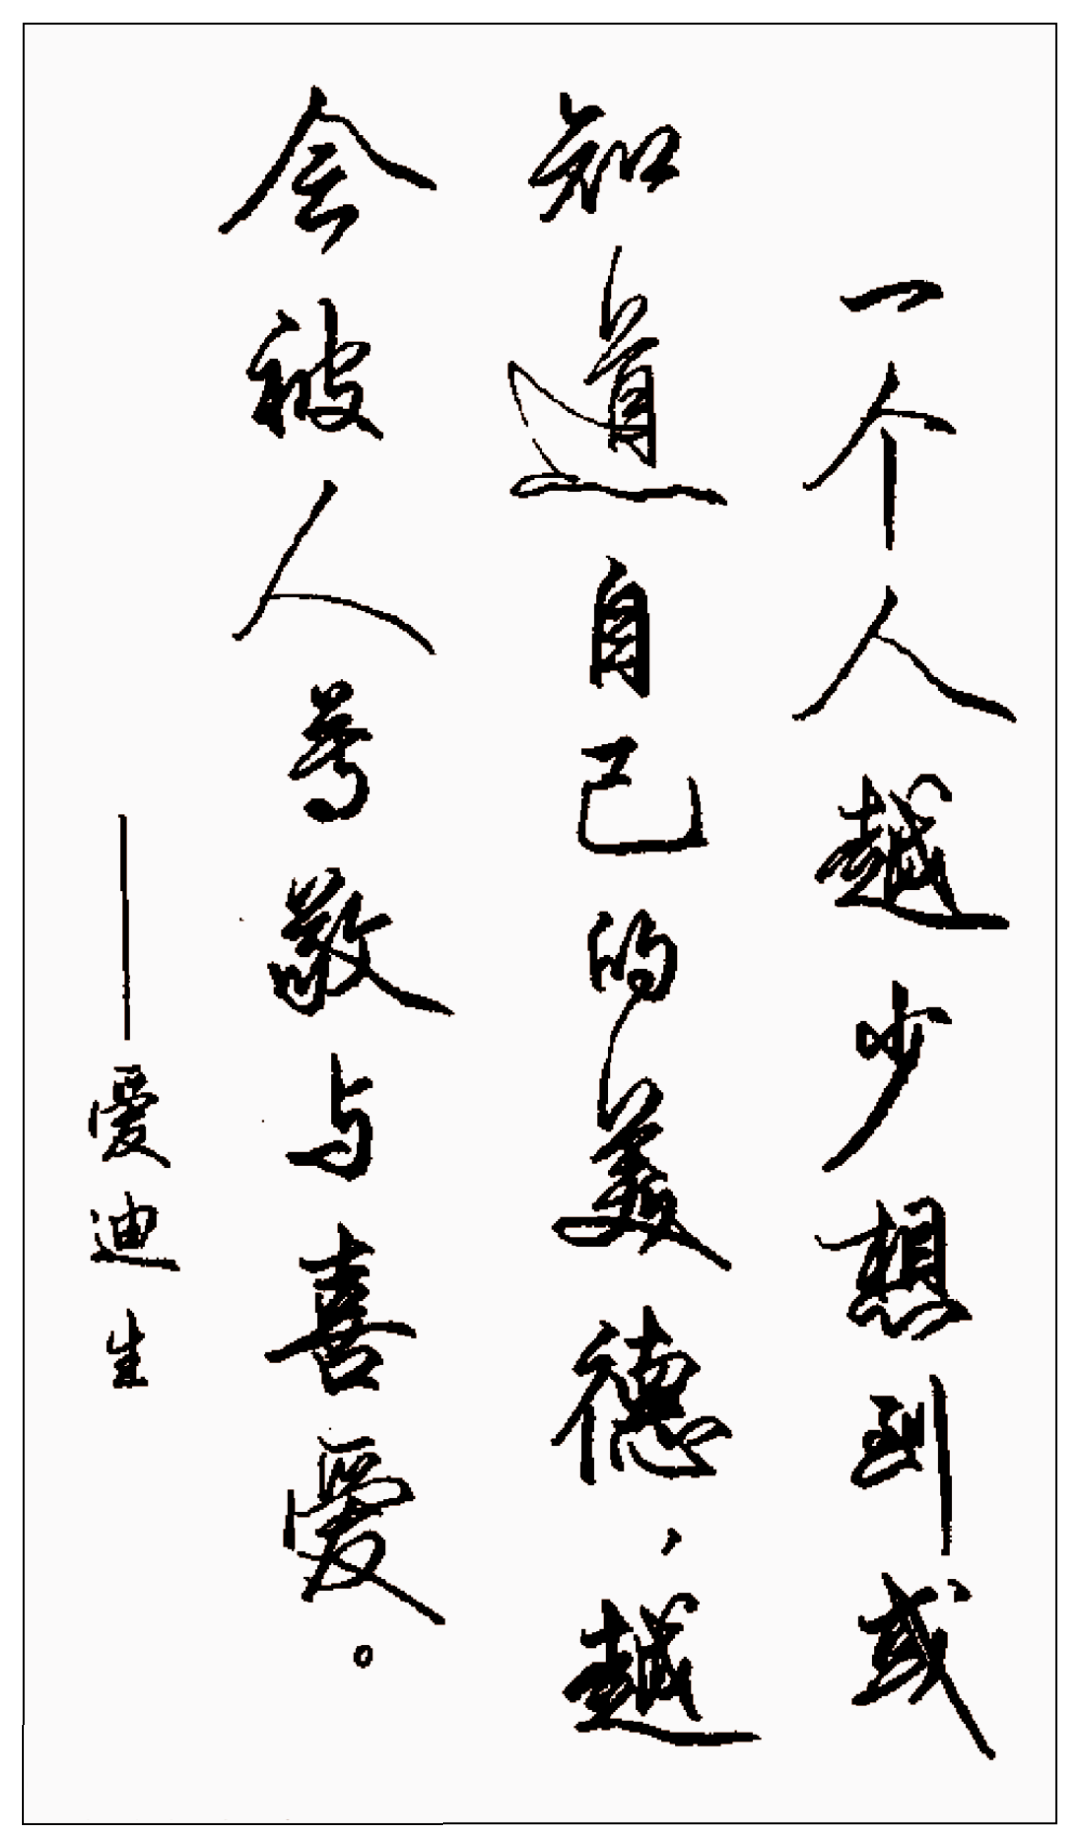 一个人越少想到或
知道自己的美德，越
会被人尊敬与喜爱。
——爱迪生